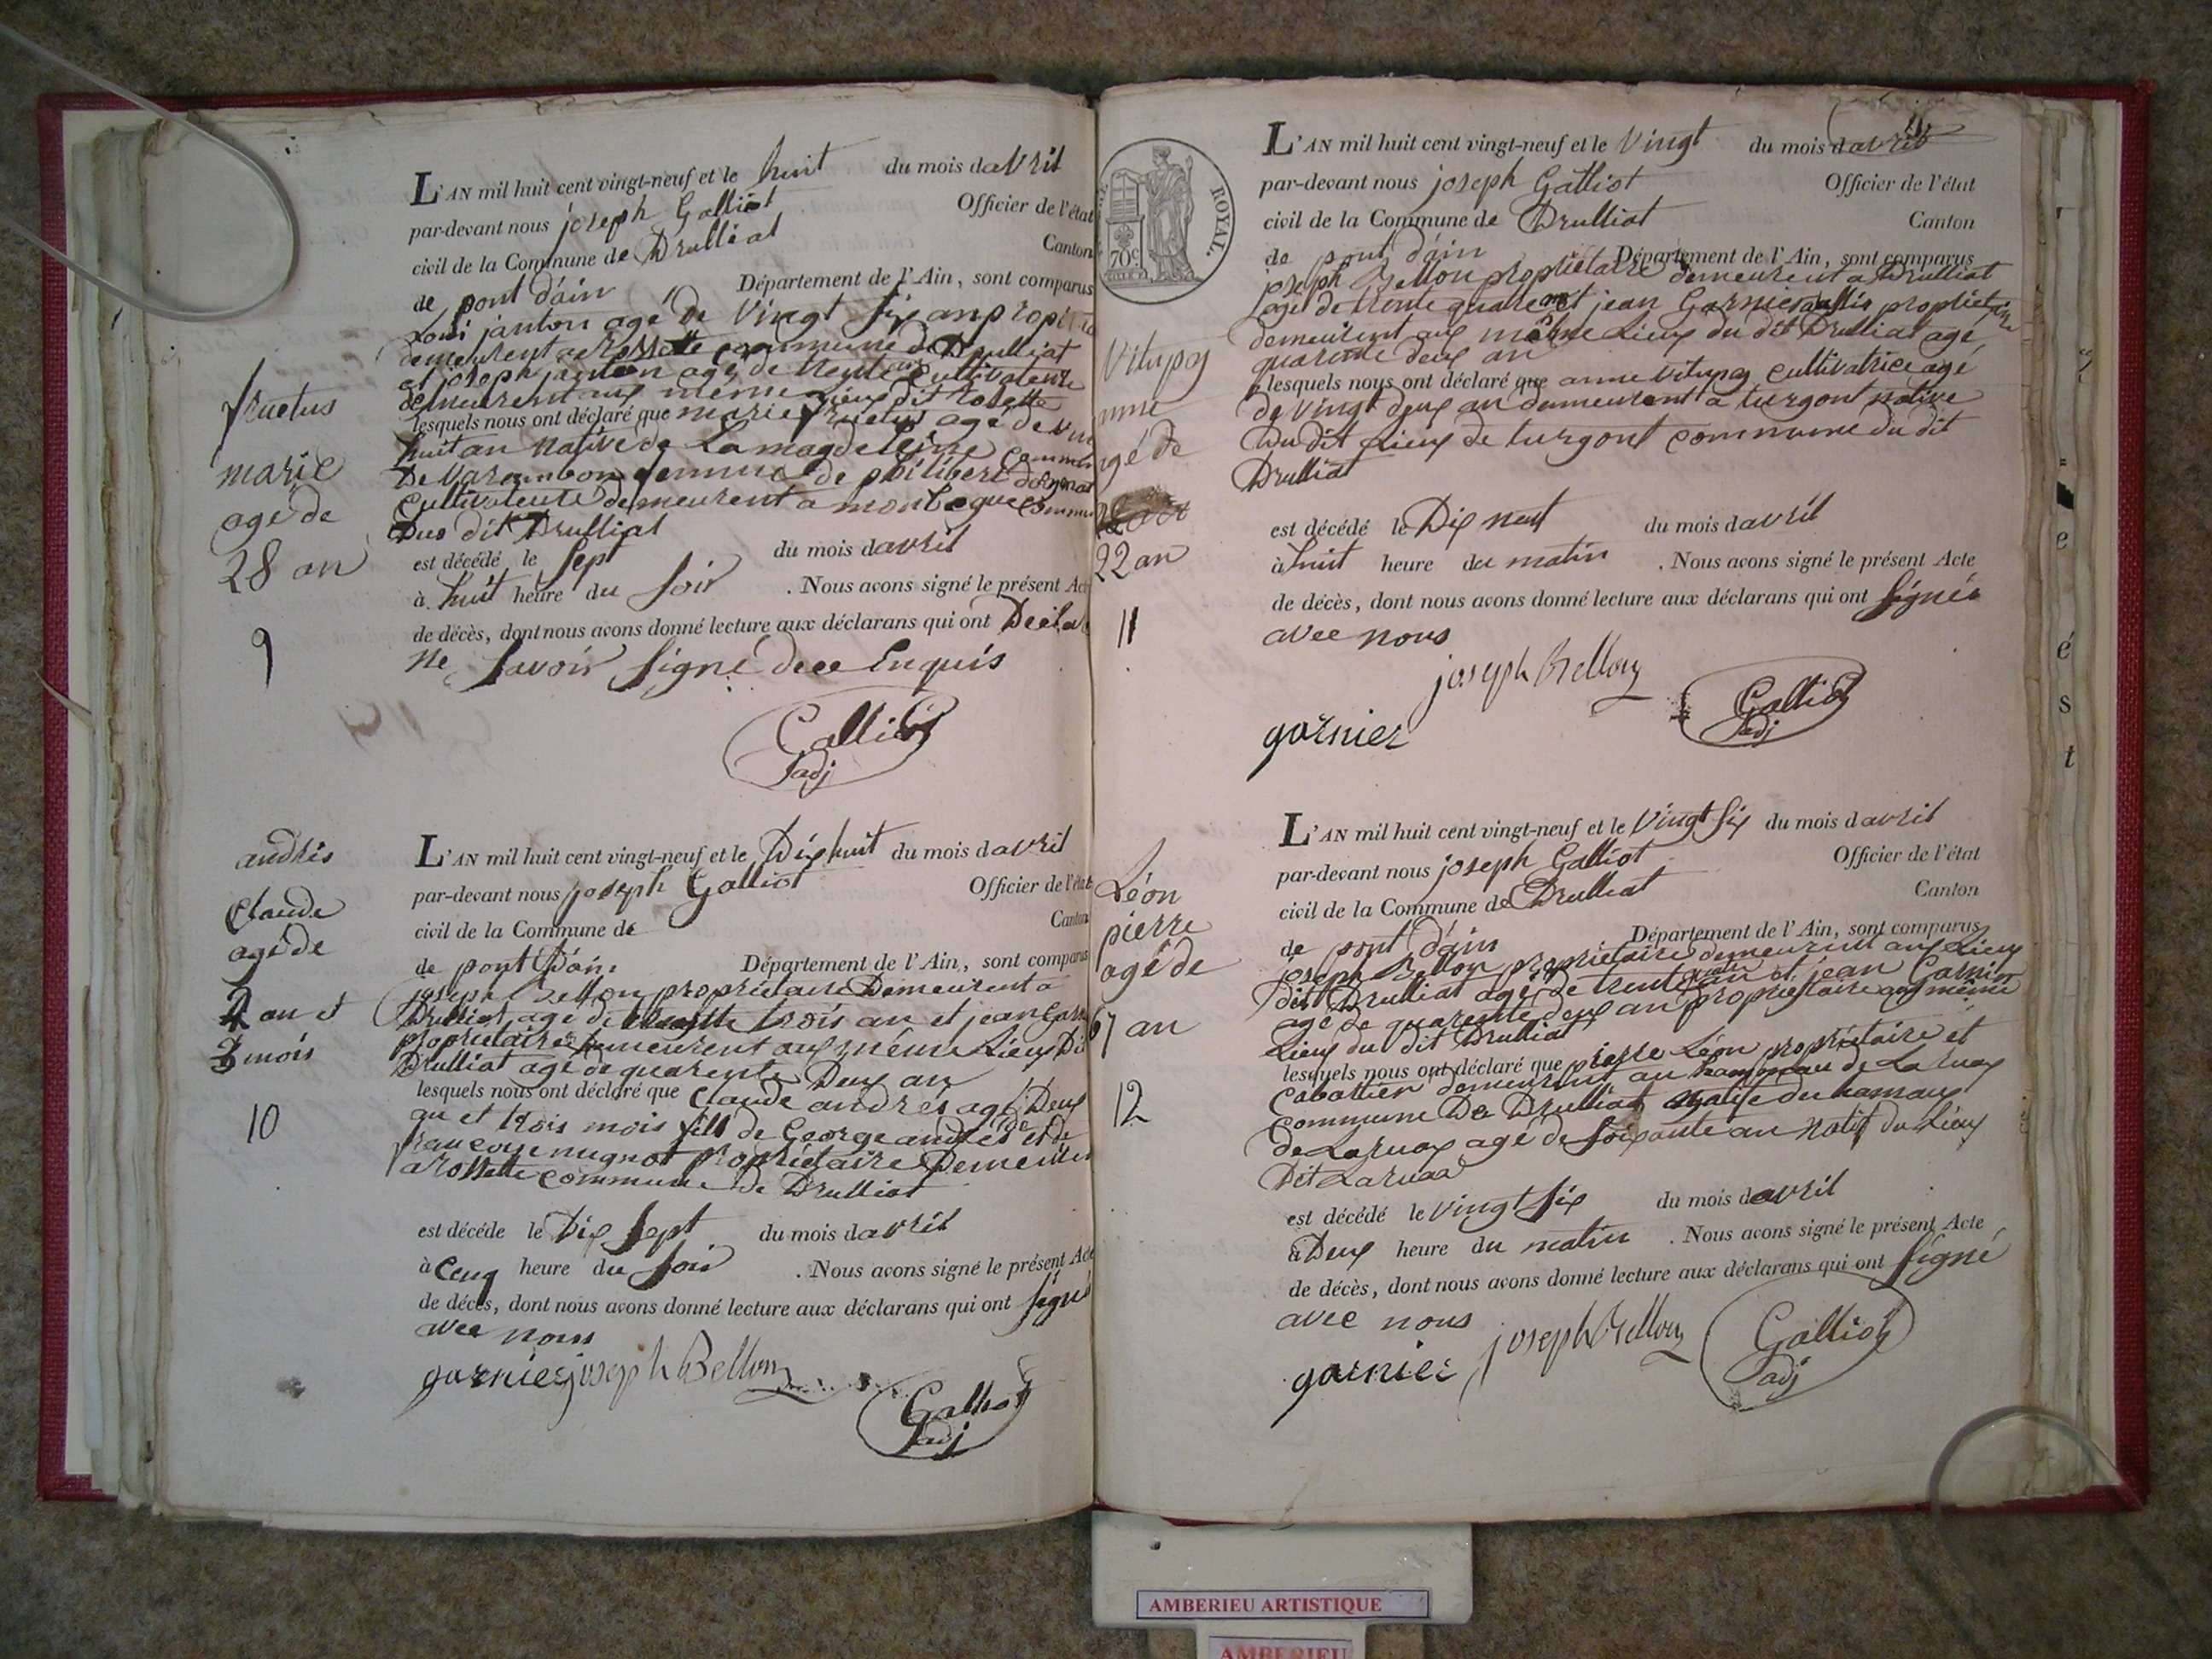 fructus
marie
agé de
28 an
9
L'AN mil huit cent vingt-neuf et le huit du mois davril
par-devant nous joseph Galliot Officier de l'état
civil de la Commune de Drulliat Canton
de pont d'ain Département de l'Ain, sont comparus
Loui janton agé de vingt six an
demeurent a Rossette commune de Drulliat
et joseph janton agé de trente cultivateure
demeurent aux même Lieux dit rosette
lesquels nous ont déclaré que marie fructus agé de
huit an native de Lamagdeleine
De Varambon femme de philibert
Cultivateure demeurent a
Dus dit Drulliat
est décédé le sept du mois davril
à huit heure du soir . Nous avons signé le présent Acte
de décès, dont nous avons donné lecture aux déclarans qui ont
ne savoir signé dece Enquis
Galliot
adj
andrés
Claude
agé de
2 an et
3 mois
10
L'AN mil huit cent vingt-neuf et le Dix huit du mois davril
par-devant nous joseph Galliot Officier de l'état
civil de la Commune de Canton
de pont Dain Département de l'Ain, sont comparus
joseph Bellon propriétaire Demeurent a
Drulliat agé de trois an et jean
propriétaire demeurent aux même Lieux
Drulliat agé de quarente Deux an
lesquels nous ont déclaré que Claude andrés agé Deux
an et trois mois fils de George andrés et de
francoise propriétaire
a rossette commune de Drulliat
est décéde le Dix sept du mois davril
à Cenq heure du soir . Nous avons signé le présent Acte
de décès, dont nous avons donné lecture aux déclarans qui ont signé
avec nous
garnier joseph Bellon
Galliot
adj
ROYAL.
70c
agé de
22 an
11
L'AN mil huit cent vingt-neuf et le vingt du mois davril
par-devant nous joseph Galliot Officier de l'état
civil de la Commune de Drulliat Canton
de pont d'ain Département de l'Ain, sont comparus
joseph Bellon propriétaire demeurent a Drulliat
agé de trente quatre an et jean Garnier propriétaire
demeurent aux même Lieux du dit Drulliat agé
quarente deux an
lesquels nous ont déclaré que anne cultivatrice agé
de vingt deux an demeurent a turgont native
Du dit Lieux de turgont commune du dit
Drulliat
est décédé le Dix neuf du mois davril
à huit heure du matin . Nous avons signé le présent Acte
de décès, dont nous avons donné lecture aux déclarans qui ont signés
avec nous
joseph Bellon
garnier
Galliot
adj
Léon
pierre
agé de
67 an
12
L'AN mil huit cent vingt-neuf et le vingt six du mois davril
par-devant nous joseph Galliot Officier de l'état
civil de la Commune de Drulliat Canton
de pont d'ain Département de l'Ain, sont comparus
joseph Bellon propriétaire demeurent aux Lieux
dit Drulliat agé de trente quatre an et jean Garnier
agé de quarente deux an propriétaire aux même
Lieux du dit Drulliat
lesquels nous ont déclaré que pierre Léon propriétaire et
Cabattier demeurent au hammeau de
commune De Drulliat du hamaux
de agé de soixante an natif du Lieux
Dit
est décédé le vingt six du mois davril
à Deux heure du matin . Nous avons signé le présent Acte
de décès, dont nous avons donné lecture aux déclarans qui ont signé
avec nous
joseph Bellon
garnier
Galliot
adj
AMBERIEU ARTISTIQUE
AMBERIEU